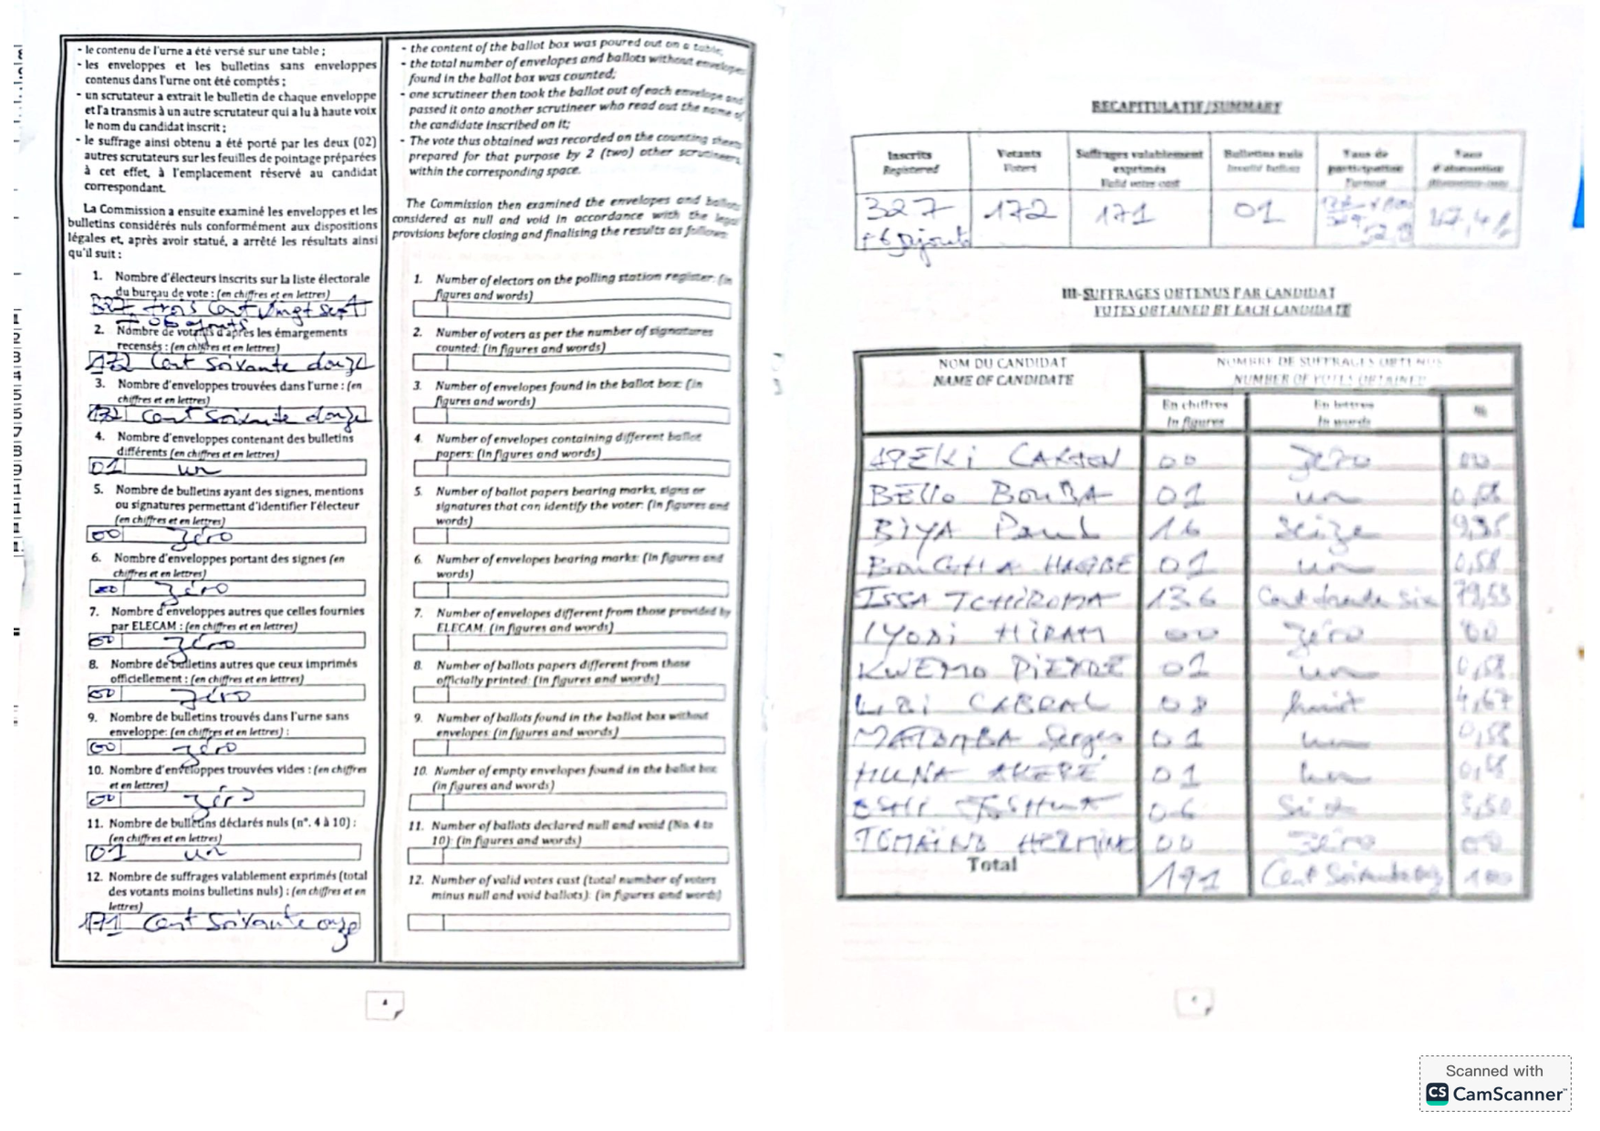 - le contenu de l'urne a été versé sur une table ;
- les enveloppes et les bulletins sans enveloppes
contenus dans l'urne ont été comptés ;
- un scrutateur a extrait le bulletin de chaque enveloppe
et l'a transmis à un autre scrutateur qui a lu à haute voix
le nom du candidat inscrit ;
- le suffrage ainsi obtenu a été porté par les deux (02)
autres scrutateurs sur les feuilles de pointage préparées
à cet effet, à l'emplacement réservé au candidat
correspondant.
La Commission a ensuite examiné les enveloppes et les
bulletins considérés nuls conformément aux dispositions
légales et, après avoir statué, a arrêté les résultats ainsi
qu'il suit :
1. Nombre d'électeurs inscrits sur la liste électorale
du bureau de vote : (en chiffres et en lettres)
327 trois cent vingt sept
2. Nombre de votants d'après les émargements
recensés : (en chiffres et en lettres)
172 Cent soixante douze
3. Nombre d'enveloppes trouvées dans l'urne : (en
chiffres et en lettres)
172 Cent soixante douze
4. Nombre d'enveloppes contenant des bulletins
différents (en chiffres et en lettres)
01 un
5. Nombre de bulletins ayant des signes, mentions
ou signatures permettant d'identifier l'électeur
(en chiffres et en lettres)
00 zéro
6. Nombre d'enveloppes portant des signes (en
chiffres et en lettres)
00 zéro
7. Nombre d'enveloppes autres que celles fournies
par ELECAM : (en chiffres et en lettres)
00 zéro
8. Nombre de bulletins autres que ceux imprimés
officiellement : (en chiffres et en lettres)
00 zéro
9. Nombre de bulletins trouvés dans l'urne sans
enveloppe: (en chiffres et en lettres) :
00 zéro
10. Nombre d'enveloppes trouvées vides : (en chiffres
et en lettres)
00 zéro
11. Nombre de bulletins déclarés nuls (n°. 4 à 10) :
(en chiffres et en lettres)
01 un
12. Nombre de suffrages valablement exprimés (total
des votants moins bulletins nuls) : (en chiffres et en
lettres)
171 Cent soixante onze
- the content of the ballot box was poured out on a table;
- the total number of envelopes and ballots without envelopes
found in the ballot box was counted;
- one scrutineer then took the ballot out of each envelope and
passed it onto another scrutineer who read out the name of
the candidate inscribed on it;
- The vote thus obtained was recorded on the counting sheets
prepared for that purpose by 2 (two) other scrutineers,
within the corresponding space.
The Commission then examined the envelopes and ballots
considered as null and void in accordance with the legal
provisions before closing and finalising the results as follows:
1. Number of electors on the polling station register: (in
figures and words)
2. Number of voters as per the number of signatures
counted: (in figures and words)
3. Number of envelopes found in the ballot box: (in
figures and words)
4. Number of envelopes containing different ballot
papers: (in figures and words)
5. Number of ballot papers bearing marks, signs or
signatures that can identify the voter: (in figures and
words)
6. Number of envelopes bearing marks: (in figures and
words)
7. Number of envelopes different from those provided by
ELECAM: (in figures and words)
8. Number of ballots papers different from those
officially printed: (in figures and words)
9. Number of ballots found in the ballot box without
envelopes: (in figures and words)
10. Number of empty envelopes found in the ballot box
(in figures and words)
11. Number of ballots declared null and void (No. 4 to
10): (in figures and words)
12. Number of valid votes cast (total number of voters
minus null and void ballots): (in figures and words)
4
RECAPITULATIF/SUMMARY
Inscrits Registered Votants Voters Suffrages valablement exprimés Valid votes cast Bulletins nuls Invalid ballots Taux de participation Turnout Taux d'abstention
327 172 171 01
+6 ajouts
III-SUFFRAGES OBTENUS PAR CANDIDAT
VOTES OBTAINED BY EACH CANDIDATE
NOM DU CANDIDAT NOMBRE DE SUFFRAGES OBTENUS
NAME OF CANDIDATE NUMBER OF VOTES OBTAINED
En chiffres En lettres %
In figures In words
00 zéro 00
BELLO BOUBA 01 un 0,58
BIYA Paul 16 seize 9,35
HAGBE 01 un 0,58
ISSA TCHIROMA 136 Cent trente six 79,53
IYODI HIRAM 00 zéro 00
KWEMO PIERRE 01 un 0,58
LIBI CABRAL 08 huit 4,67
MATOMBA Serges 01 un 0,58
MUNA AKERE 01 un 0,58
OSIH JOSHUA 06 Six 3,50
TOMAINO HERMINE 00 zéro 00
Total 171 Cent Soixante onze 100
Scanned with
CS CamScanner